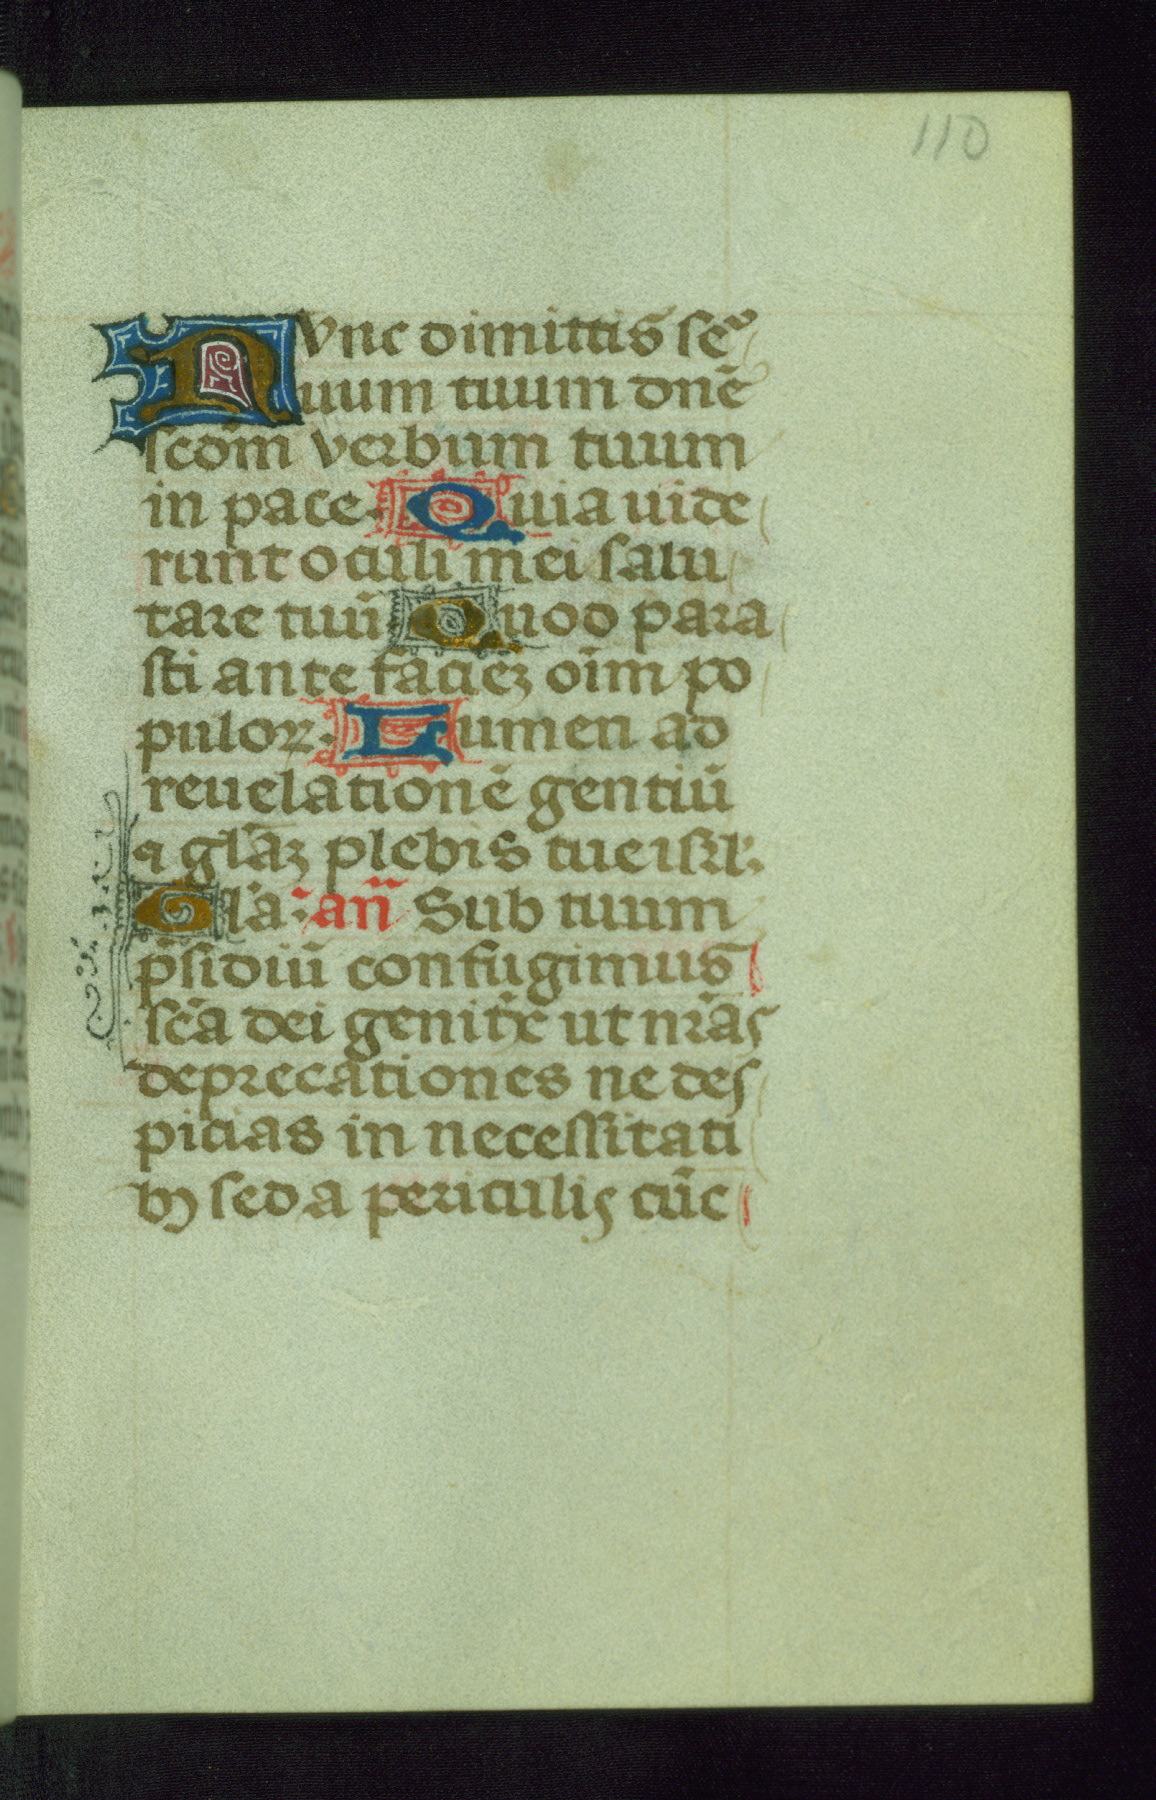 110
NVnc dimittis seͬ
uum tuum dnē
scdm̄ verbum tuum
in pace. Quia uide
runt oculi mei salu
tare tuū Quod para
sti ante faciēꝫ oīm po
puloꝝ. Lumen ad
reuelationē gentiū
⁊ glāꝫ plebis tue isrl.
Gl'a. an̄ Sub tuum
p̄sidiū confugimus
scā dei genitͥx ut nrās
deprecationes ne des
picias in necessitati
bꝫ sed a periculis cūc